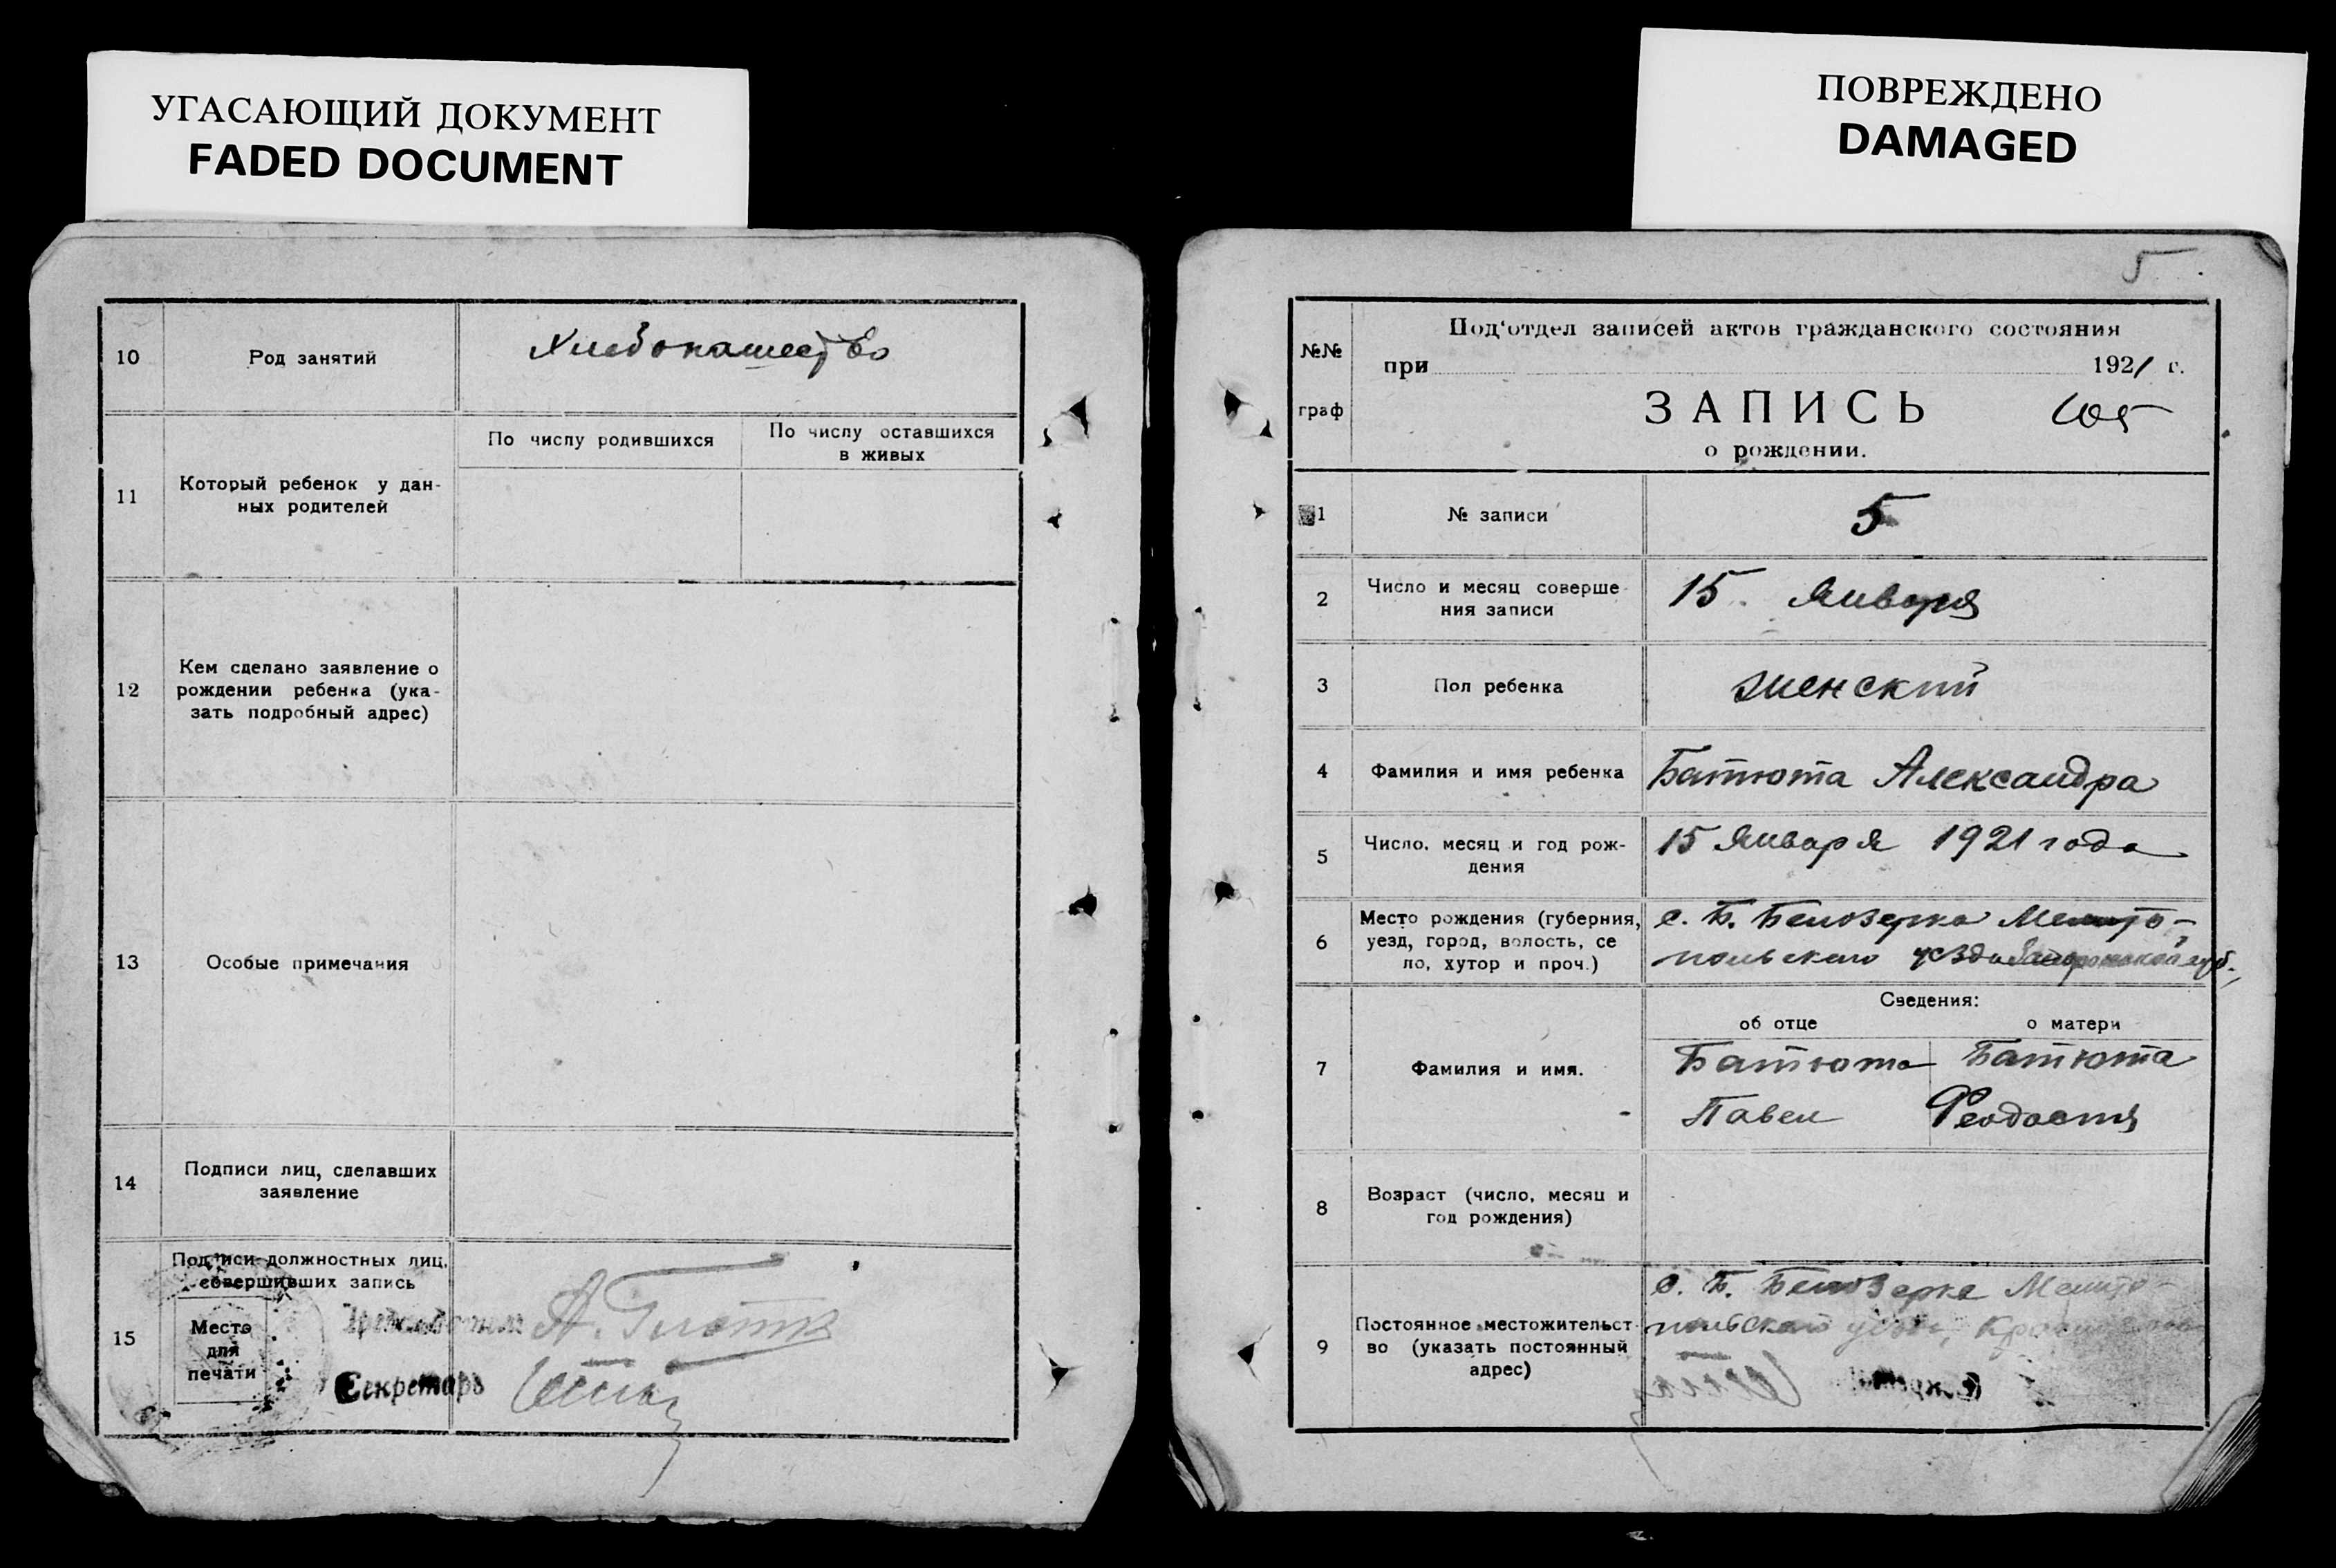 УГАСАЮЩИЙ ДОКУМЕНТ
FADED DOCUMENT
ПОВРЕЖДЕНО
DAMAGED
10
Род занятий
Хлебопашество
11
Который ребенок у дан-
ных родителей
По числу родившихся
По числу оставшихся
в живых
12
Кем сделано заявление о
рождении ребенка (ука-
зать подробный адрес)
13
Особые примечания
14
Подписи лиц, сделавших
заявление
15
Подписи должностных лиц,
совершивших запись
Место
для
печати
Секретарь
5
№№
граф
Под'отдел записей актов гражданского состояния
при 1921 г.
ЗАПИСЬ
о рождении.
1
№ записи
5
2
Число и месяц соверше-
ния записи
15. Января
3
Пол ребенка
женский
4
Фамилия и имя ребенка
Батюта Александра
5
Число, месяц и год рож-
дения
15 Января 1921 года
6
Место рождения (губерния,
уезд, город, волость, се
ло, хутор и проч.)
с. Б. Белозерка Мелито-
польского уезда Запорожской губ.
Сведения:
об отце
о матери
7
Фамилия и имя.
Батюта
Павел
Батюта
Феодосия
8
Возраст (число, месяц и
год рождения)
9
Постоянное местожительст-
во (указать постоянный
адрес)
с. Б. Белозерка Мелито-
польского уезда,